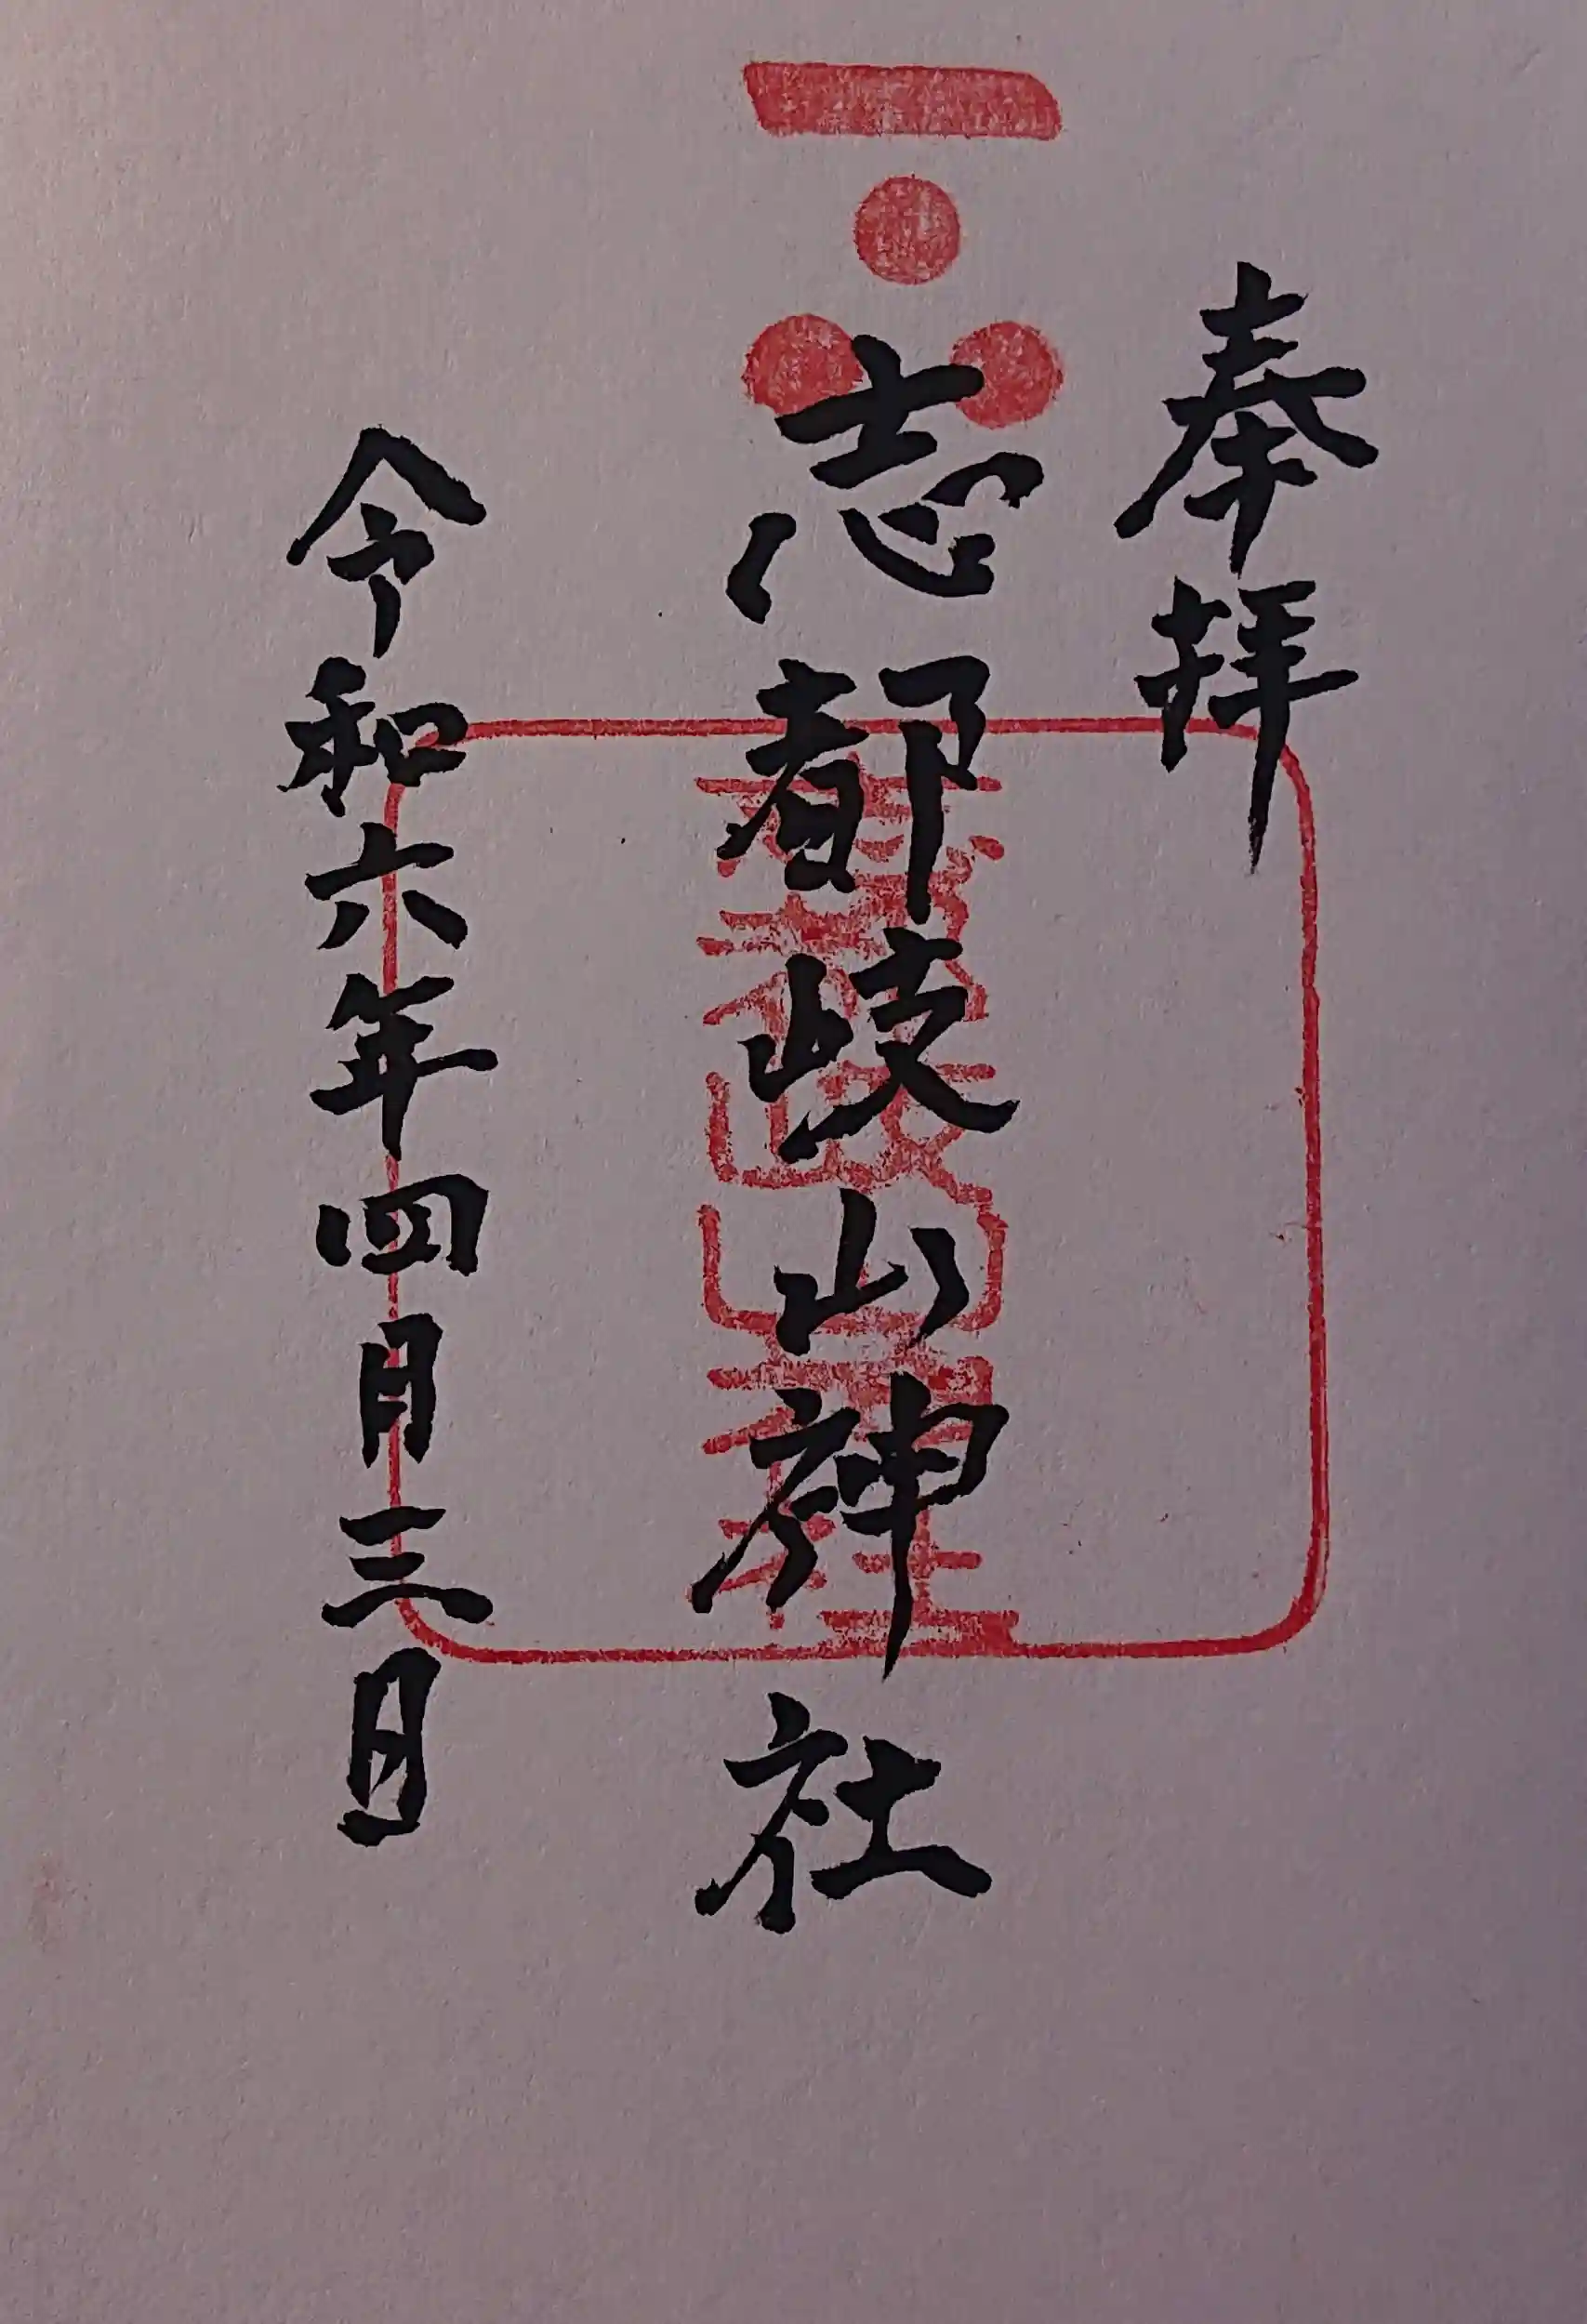 奉拝
志都岐山神社
令和六年四月三日